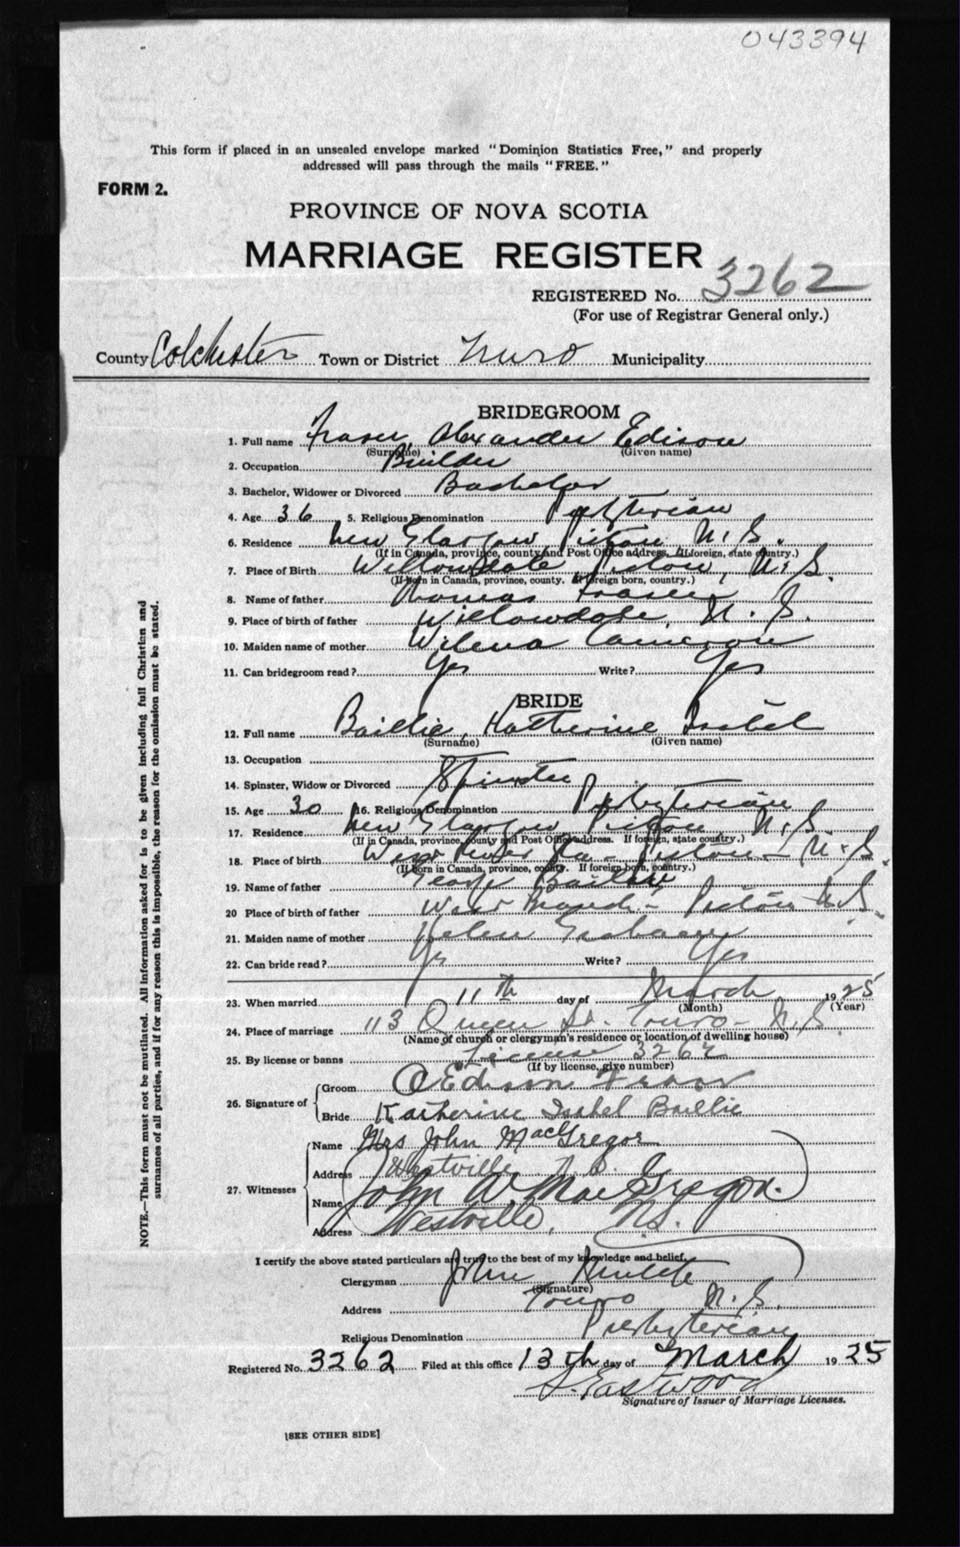 043394
This form if placed in an unsealed envelope marked "Dominion Statistics Free," and properly
addressed will pass through the mails "FREE."
FORM 2.
PROVINCE OF NOVA SCOTIA
MARRIAGE REGISTER
REGISTERED No. 3262
(For use of Registrar General only.)
County Colchester Town or District Truro Municipality
BRIDEGROOM
1. Full name Fraser, Alexander Edison
(Surname) (Given name)
2. Occupation Builder
3. Bachelor, Widower or Divorced Bachelor
4. Age 36 5. Religious Denomination Presbyterian
6. Residence New Glasgow Pictou N.S.
(If in Canada, province, county and Post Office address. If foreign, state country.)
7. Place of Birth Willowdale, Pictou, N.S.
(If born in Canada, province, county. If foreign born, country.)
8. Name of father Thomas Fraser
9. Place of birth of father Willowdale, N.S.
10. Maiden name of mother Wilena Cameron
11. Can bridegroom read? Yes Write? Yes
BRIDE
12. Full name Baillie, Katherine Isabel
(Surname) (Given name)
13. Occupation
14. Spinster, Widow or Divorced Spinster
15. Age 30 16. Religious Denomination Presbyterian
17. Residence New Glasgow Pictou N.S.
(If in Canada, province, county and Post Office address. If foreign, state country.)
18. Place of birth West River Pictou N.S.
(If born in Canada, province, county. If foreign born, country.)
19. Name of father George Baillie
20 Place of birth of father West Pictou N.S.
21. Maiden name of mother Helen
22. Can bride read? Yes Write? Yes
23. When married 11th day of March 1925
(Month) (Year)
24. Place of marriage 113 Queen St. Truro - N.S.
(Name of church or clergyman's residence or location of dwelling house)
25. By license or banns License 3262
(If by license, give number)
26. Signature of Groom A Edison Fraser
Bride Katherine Isabel Baillie
27. Witnesses Name Mrs John MacGregor
Address Westville N.S.
Name John A. MacGregor.
Address Westville, N.S.
I certify the above stated particulars are true to the best of my knowledge and belief.
Clergyman John
(Signature)
Address Truro N.S.
Religious Denomination Presbyterian
Registered No. 3262 Filed at this office 13th day of March 1925
S. Eastwood
Signature of Issuer of Marriage Licenses.
[SEE OTHER SIDE]
NOTE.—This form must not be mutilated. All information asked for is to be given including full Christian and
surnames of all parties, and if for any reason this is impossible, the reason for the omission must be stated.